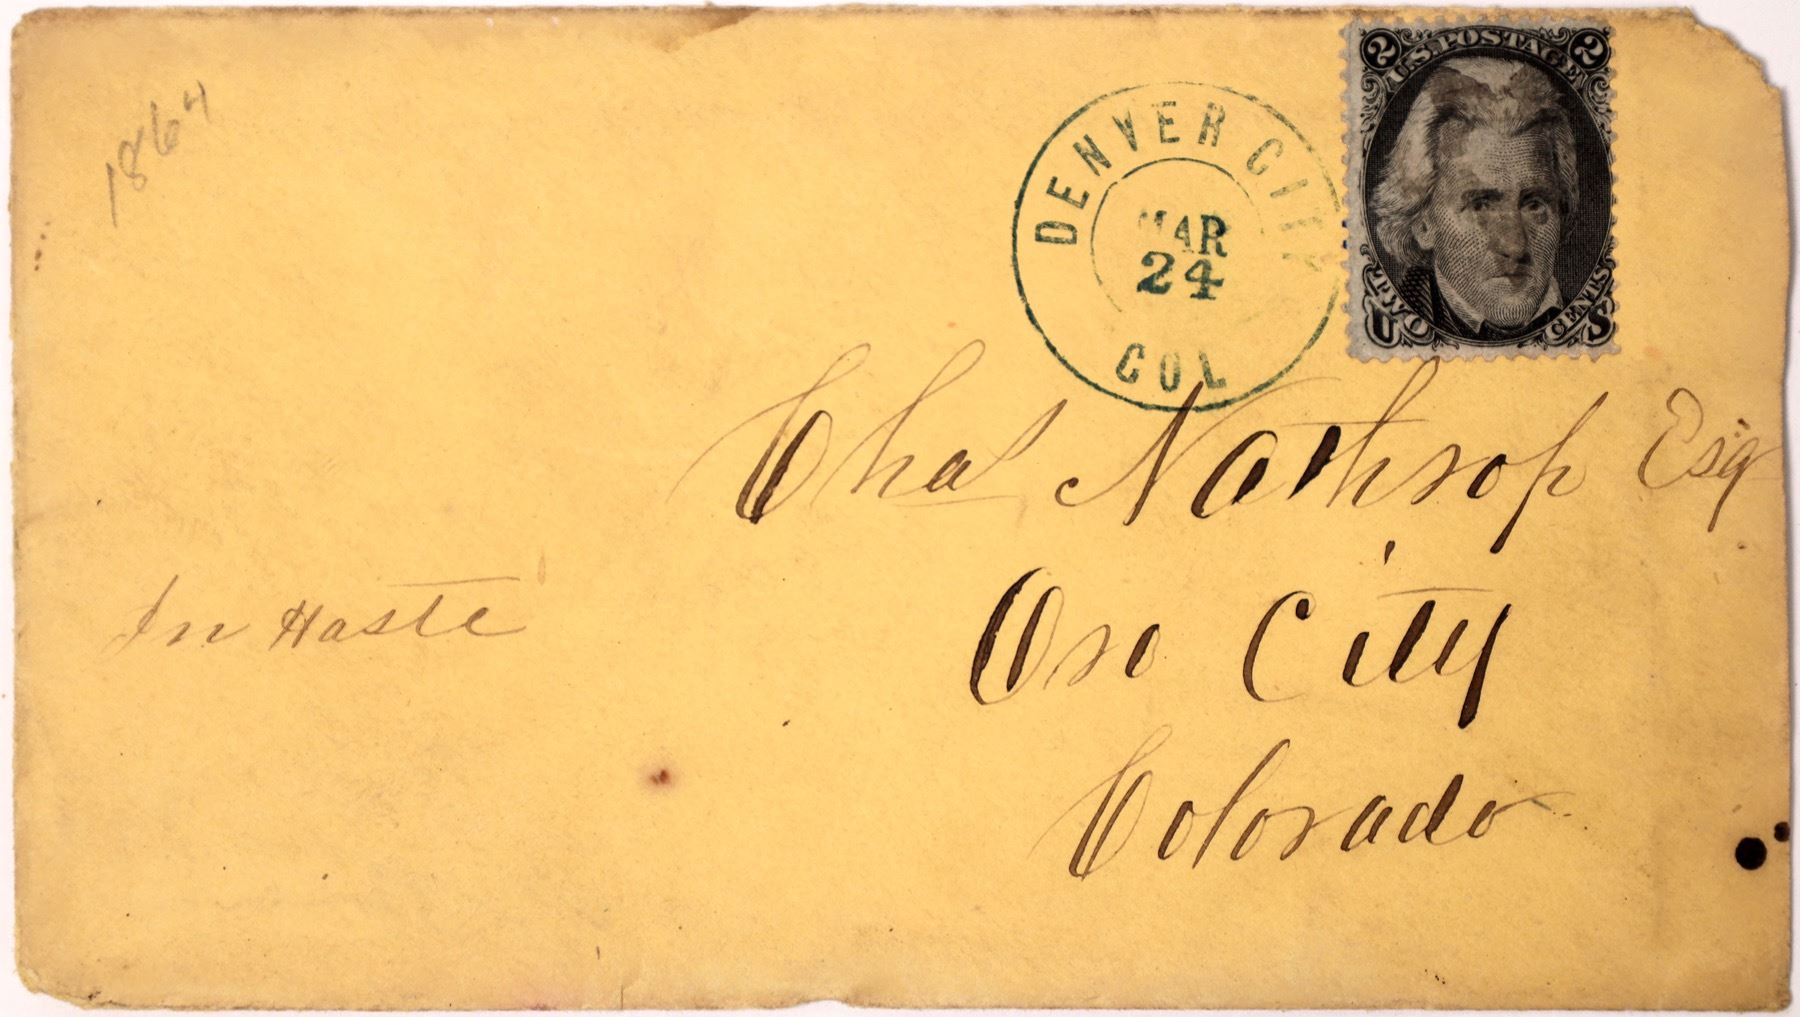 1864
DENVER CITY
MAR
24
COL
2 U.S. POSTAGE 2
TWO CENTS
U S
Chas Nothrop Esq
Oro City
Colorado
In Haste